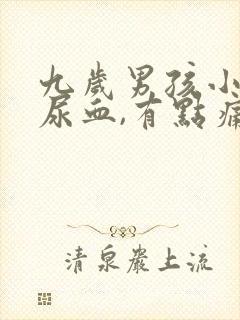 九歲男孩小
尿血,有點痛
清泉巖上流